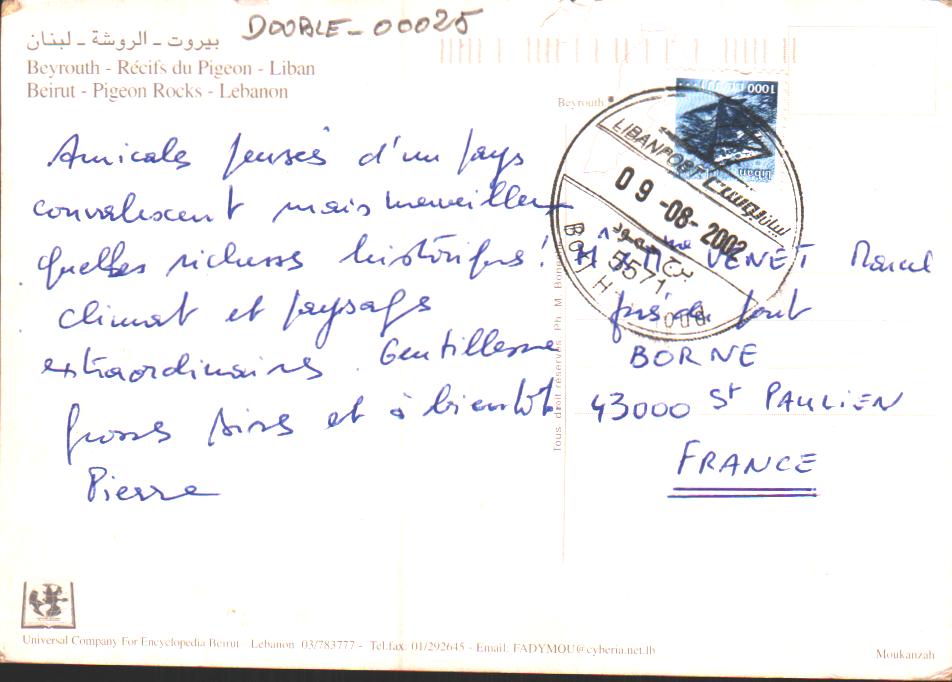 DOUBLE - 00025
بيروت - الروشة - لبنان
Beyrouth - Récifs du Pigeon - Liban
Beirut - Pigeon Rocks - Lebanon
Beyrouth
1000
Liban
LIBANPOST ليبان بوست
09-08-2002
برج حمود
5571
Amicales pensés d'un pays
convalescent mais merveilleux
quelles richesses historiques!
climat et paysages
extraordinaires. Gentillesse
grosses bises et à bientôt
Pierre
VENET Marcel
BORNE
43000 St PAULIEN
FRANCE
Tous droit réservés Ph. M.
Universal Company For Encyclopedia Beirut - Lebanon 03/783777 - Tel.fax: 01/292645 - Email: FADYMOU@cyberia.net.lb
Moukanzah